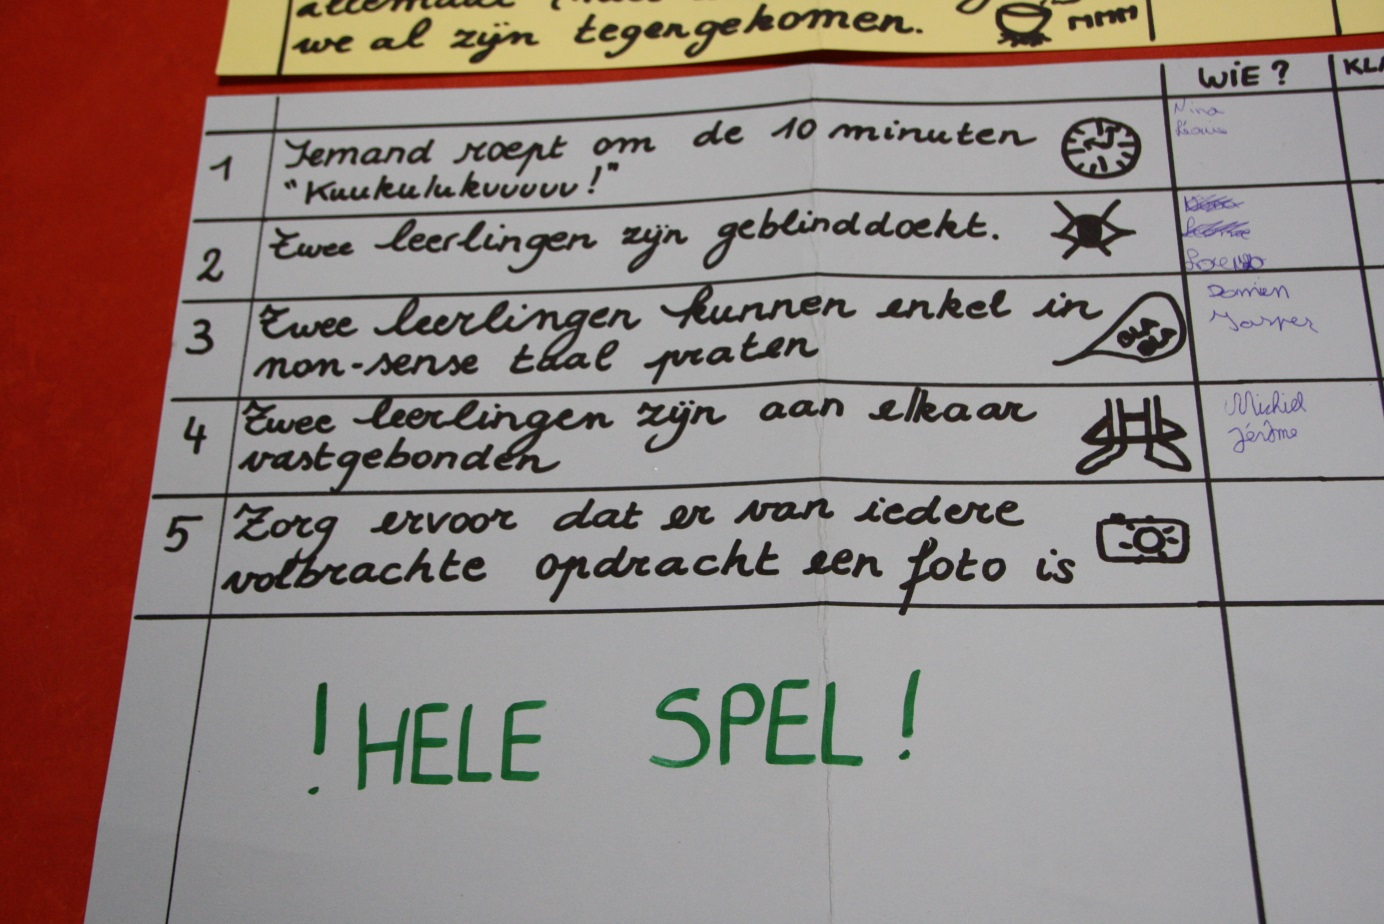 we al zijn tegengekomen.
MMM
WIE ?
1
Iemand roept om de 10 minuten
"Kuukulukuuuuu!"
Nina
2
Twee leerlingen zijn geblinddoekt.
Lorenzo
3
Twee leerlingen kunnen enkel in
non-sense taal praten
Damien
Jasper
4
Twee leerlingen zijn aan elkaar
vastgebonden
Michiel
Jérôme
5
Zorg ervoor dat er van iedere
volbrachte opdracht een foto is
! HELE SPEL !